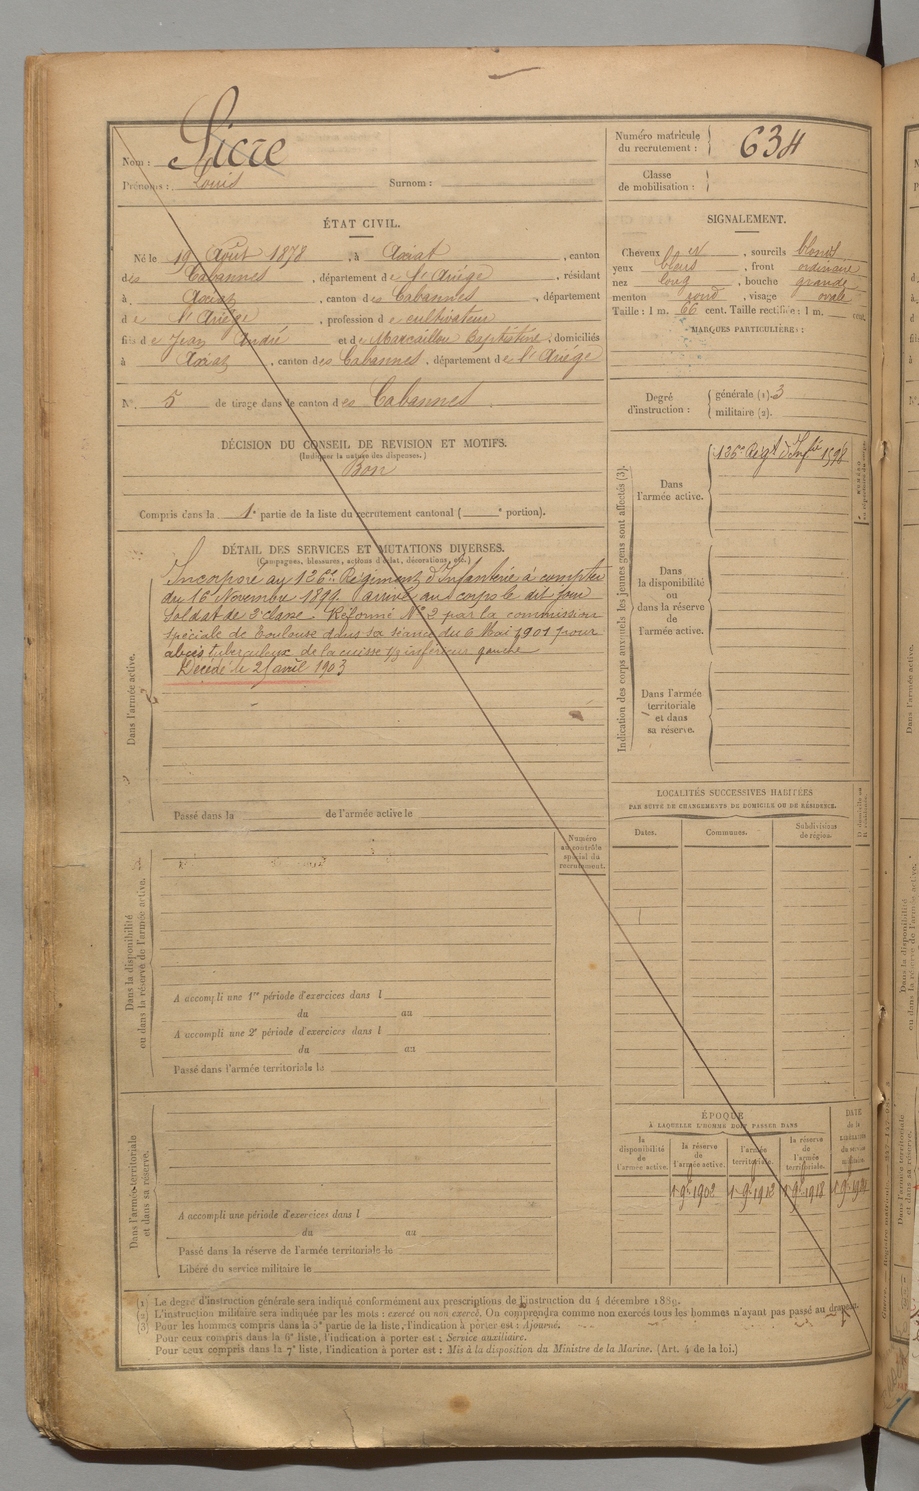 Nom : Sicre
Prénoms : Louis Surnom :
Numéro matricule du recrutement : 634
Classe de mobilisation :
ÉTAT CIVIL.
Né le 19 Août 1878, à Axiat, canton
des Cabannes, département de l'Ariège, résidant
à Axiat, canton des Cabannes, département
de l'Ariège, profession de cultivateur
fils de Jean André et de Marcaillou Baptistine, domiciliés
à Axiat, canton des Cabannes, département de l'Ariège
N° 5 de tirage dans le canton des Cabannes.
DÉCISION DU CONSEIL DE REVISION ET MOTIFS.
(Indiquer la nature des dispenses.)
Bon
Compris dans la 1e partie de la liste du recrutement cantonal ( e portion).
SIGNALEMENT.
Cheveux N, sourcils blonds
yeux bleus, front ordinaire
nez long, bouche grande
menton rond, visage ovale
Taille : 1 m. 66 cent. Taille rectifiée : 1 m. cent.
MARQUES PARTICULIÈRES :
Degré d'instruction : générale (1). 3
militaire (2).
DÉTAIL DES SERVICES ET MUTATIONS DIVERSES.
(Campagnes, blessures, actions d'éclat, décorations, etc.)
Dans l'armée active.
Incorporé au 126e Régiment d'Infanterie à compter
du 16 Novembre 1899. arrivé au corps le dit jour
soldat de 2e classe. Réformé N° 2 par la commission
spéciale de Toulouse dans sa séance du 6 Mai 1901 pour
abcès tuberculeux de la cuisse 1/3 inférieur gauche
Décédé le 21 avril 1903
Passé dans la de l'armée active le
Indication des corps auxquels les jeunes gens sont affectés (3).
Dans l'armée active.
126e Régt d'Infie 1598
Dans la disponibilité ou dans la réserve de l'armée active.
Dans l'armée territoriale et dans sa réserve.
LOCALITÉS SUCCESSIVES HABITÉES
PAR SUITE DE CHANGEMENTS DE DOMICILE OU DE RÉSIDENCE.
Dates. Communes. Subdivisions de région.
Dans la disponibilité ou dans la réserve de l'armée active.
Numéro au contrôle spécial du recrutement.
A accompli une 1re période d'exercices dans l
du au
A accompli une 2e période d'exercices dans l
du au
Passé dans l'armée territoriale le
Dans l'armée territoriale et dans sa réserve.
A accompli une période d'exercices dans l
du au
Passé dans la réserve de l'armée territoriale le
Libéré du service militaire le
ÉPOQUE
À LAQUELLE L'HOMME DOIT PASSER DANS
la disponibilité de l'armée active.
la réserve de l'armée active.
l'armée territoriale.
la réserve de l'armée territoriale.
DATE de la LIBÉRATION du service militaire.
1 9bre 1902 1 9bre 1912 1 9bre 1918
(1) Le degré d'instruction générale sera indiqué conformément aux prescriptions de l'instruction du 4 décembre 1889.
(2) L'instruction militaire sera indiquée par les mots : exercé ou non exercé. On comprendra comme non exercés tous les hommes n'ayant pas passé au drapeau.
(3) Pour les hommes compris dans la 5e partie de la liste, l'indication à porter est : Ajourné.
Pour ceux compris dans la 6e liste, l'indication à porter est : Service auxiliaire.
Pour ceux compris dans la 7e liste, l'indication à porter est : Mis à la disposition du Ministre de la Marine. (Art. 4 de la loi.)